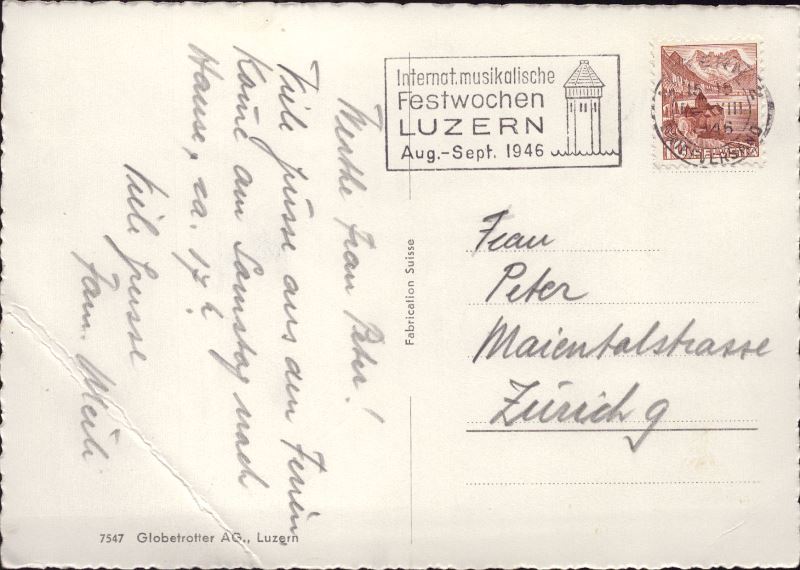 Internat. musikalische
Festwochen
LUZERN
Aug.-Sept. 1946
Frau
Peter
Maientalstrasse
Zürich 9
Werthe Frau Peter!
Viele Grüsse aus den Ferien.
Käme am Samstag nach
Hause, ca. 17 h.
Viele Grüsse
Fam. Weili
Fabrication Suisse
7547 Globetrotter AG., Luzern